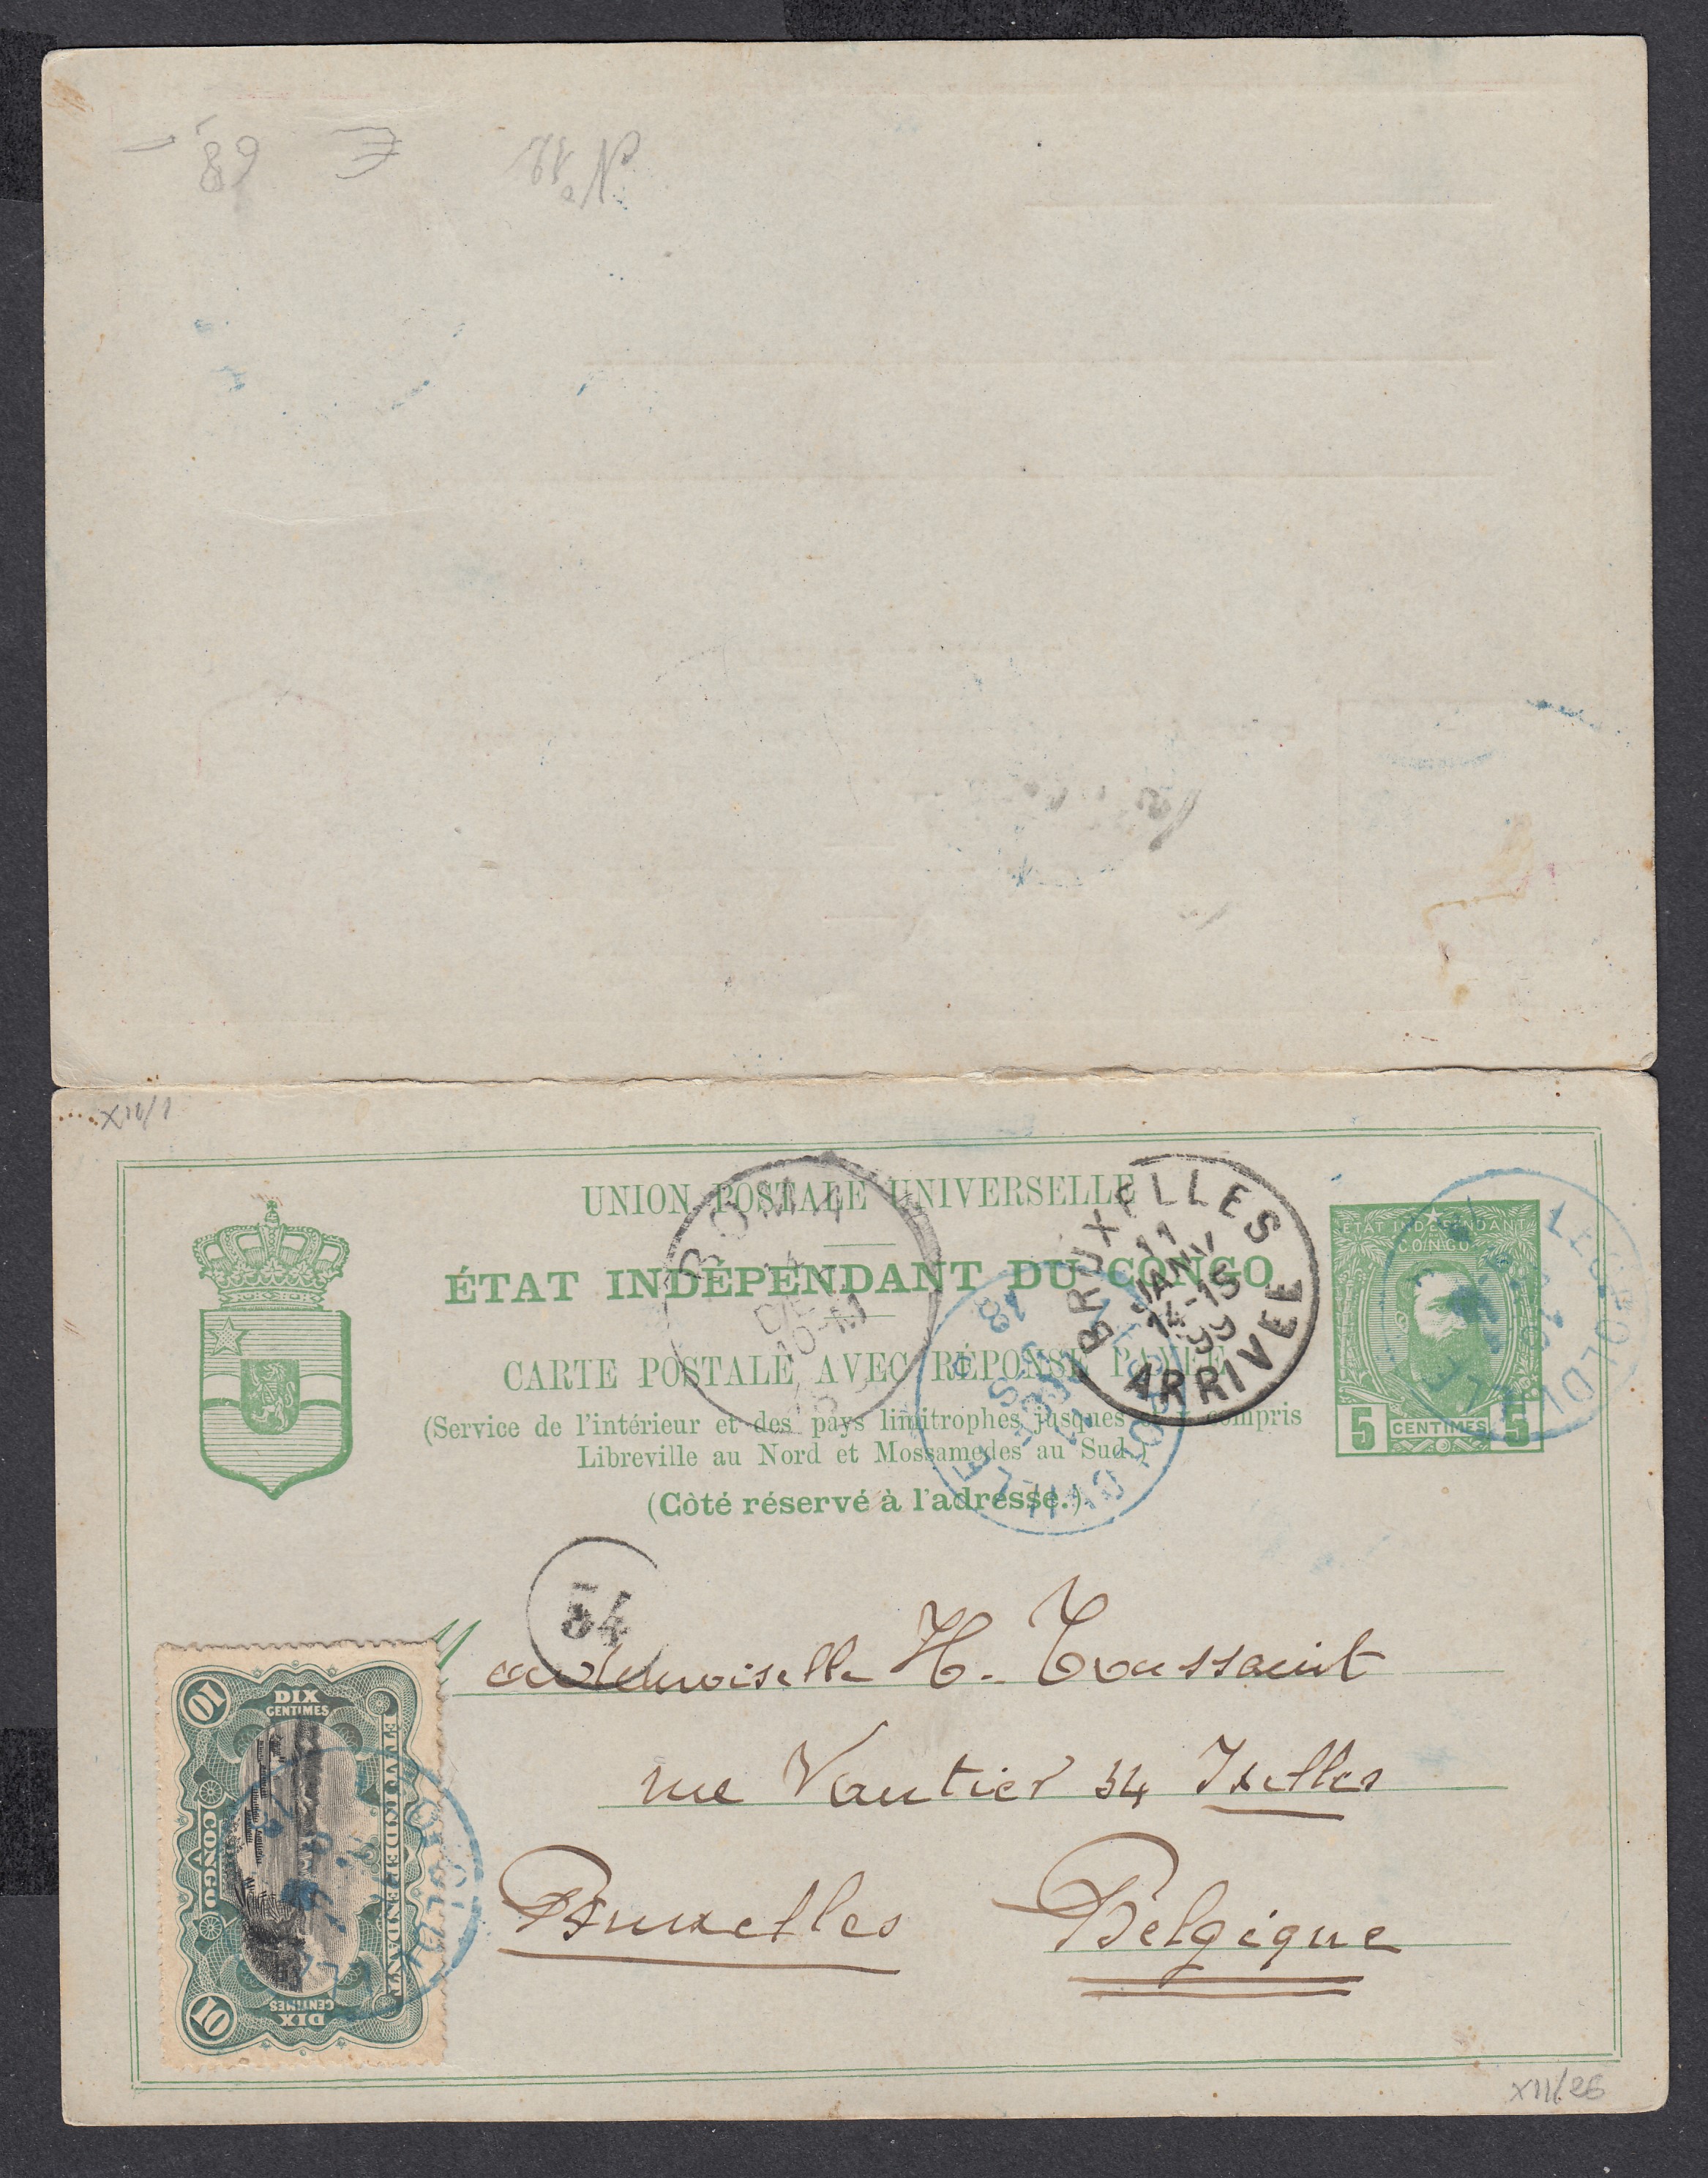 N° 12
E
68,-
XII/1
UNION POSTALE UNIVERSELLE
ÉTAT INDÉPENDANT DU CONGO
CARTE POSTALE AVEC RÉPONSE PAYÉE
(Service de l'intérieur et des pays limitrophes jusques et y compris
Libreville au Nord et Mossamedes au Sud.)
(Côté réservé à l'adresse.)
BOMA
14
DÉC
10-M
BRUXELLES
11
JANV
14-15
99
ARRIVEE
ÉTAT INDÉPENDANT
CONGO
5 CENTIMES 5
LEOPOLDVILLE
LEOPOLDVILLE
54
Mademoiselle H. Toussaint
rue Vautier 54 Ixelles
Bruxelles Belgique
10 DIX CENTIMES
ETAT INDEPENDANT
CONGO
10 DIX CENTIMES
LEOPOLDVILLE
XII/26